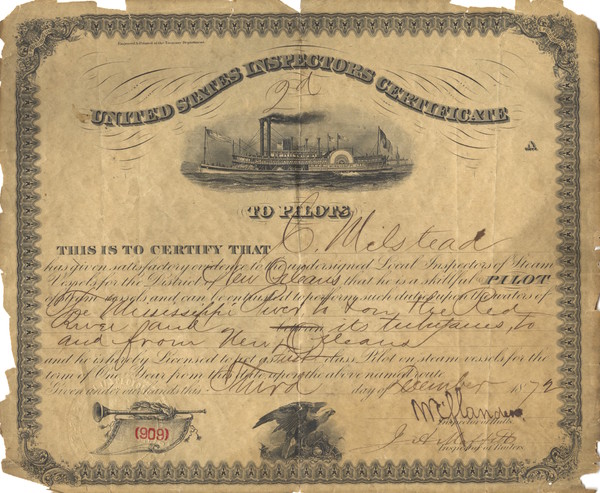 UNITED STATES INSPECTORS CERTIFICATE
2d
TO PILOTS
THIS IS TO CERTIFY THAT C. Milstead
has given satisfactory evidence to the undersigned Local Inspectors of Steam
Vessels for the District New Orleans that he is a skillful PILOT
of Steam vessels and can be trusted to perform such duties upon the waters of
The Mississippi River to and Red
River and its tributaries, to
and from New Orleans
and he is hereby Licensed to act as class Pilot on steam vessels for the
term of One Year from this date upon the above named route
Given under our hands this Third day of December 1872
Inspector of Hulls
(909)
Inspector of Boilers